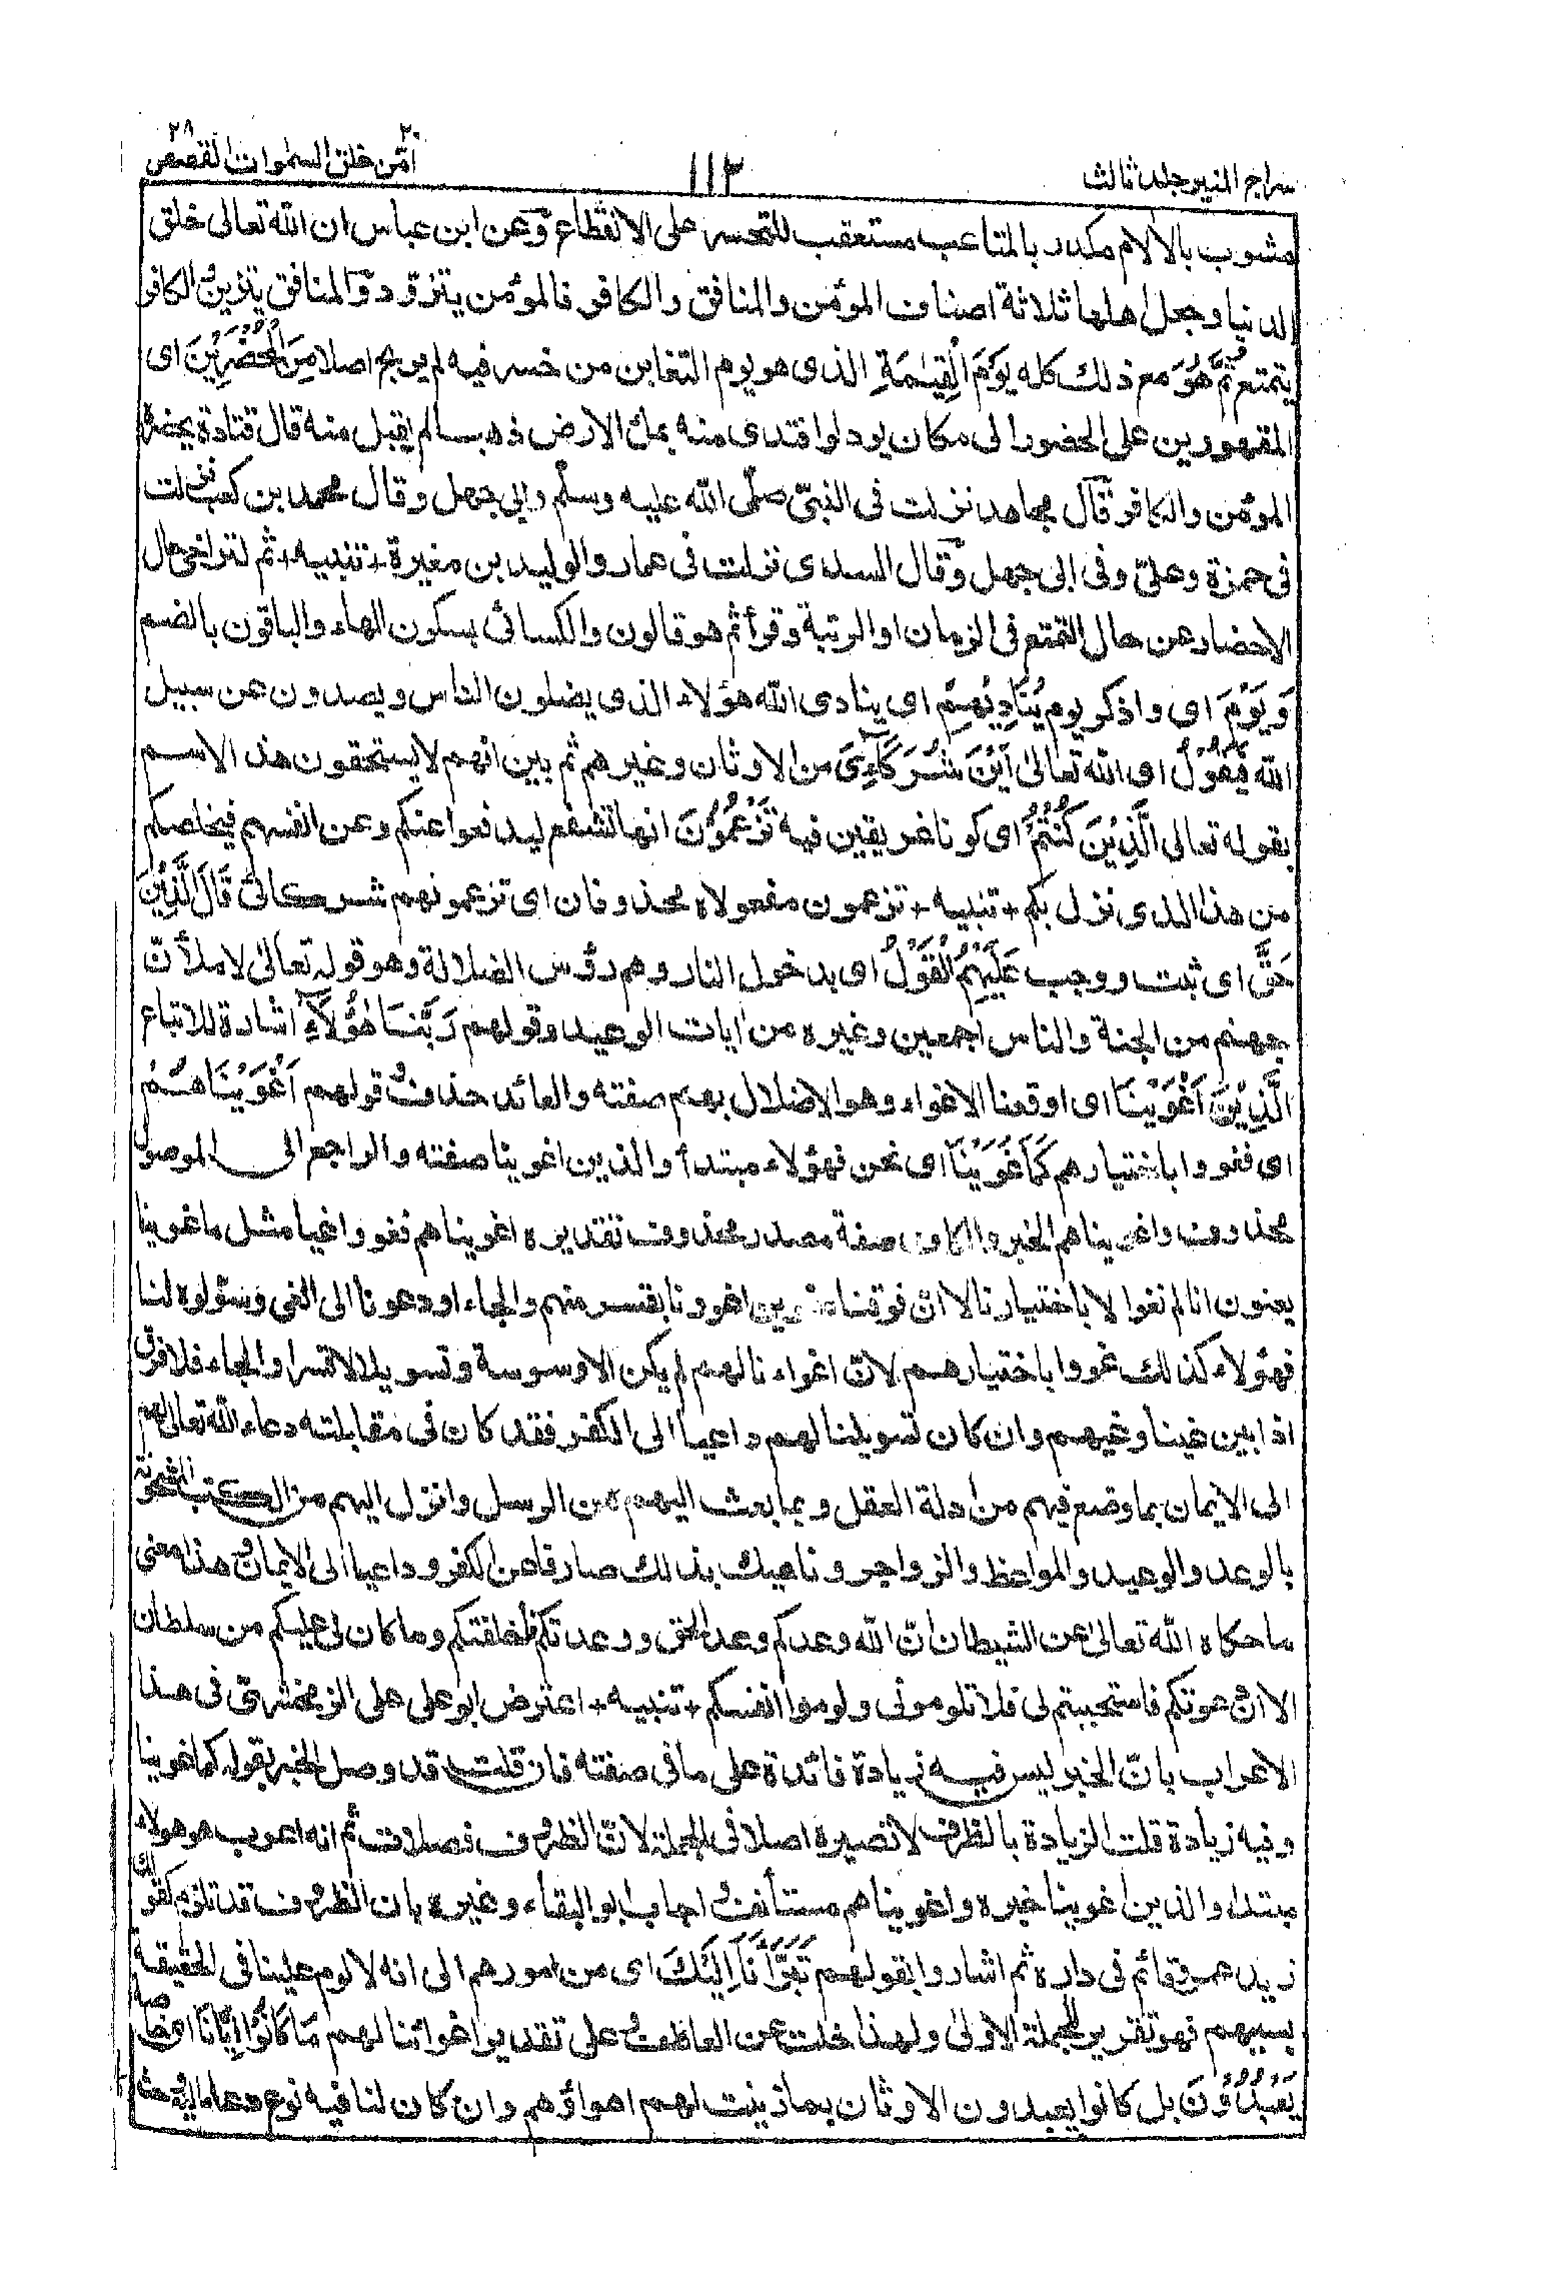 سراج المنير جلد ثالث ١١٢ امّن خلق السمٰوات ٢٠ القصص ٢٨
مشوب بالآلام مكدر بالمتاعب مستعقب للتحسر على الانقطاع وعن ابن عباس ان الله تعالى خلق
الدنيا وجعل اهلها ثلاثة اصناف المؤمن والمنافق والكافر فالمؤمن يتزوّد والمنافق يتزين والكافر
يتمتع ثُمَّ هُوَ مع ذلك كله يَوْمَ الْقِيٰمَةِ الذى هو يوم التغابن من خسر فيه لم يربح اصلا مِنَ الْمُحْضَرِيْنَ اى
المقهورين على الحضور الى مكان يود لو افتدى منه بملء الارض ذهبا لم يقبل منه قال قتادة يحضره
المؤمن والكافر قال مجاهد نزلت فى النبىّ صلّى الله عليه وسلّم وابى جهل وقال محمد بن كعب نزلت
فى حمزة وعلىّ وفى ابى جهل وقال السدى نزلت فى عمار والوليد بن مغيرة + تنبيه + ثم لتراخى حال
الاحضار عن حال التمتع فى الزمان او الرتبة وقرأ ثم هو قالون والكسائى بسكون الهاء والباقون بالضم
وَيَوْمَ اى واذكر يوم يُنَادِيْهِمْ اى ينادى الله هؤلاء الذى يضلون الناس ويصدون عن سبيل
الله فَيَقُوْلُ اى الله تعالىٰ اَيْنَ شُرَكَآءِىَ من الاوثان وغيرهم ثم بين انهم لا يستحقون هذا الاسم
بقوله تعالى الَّذِيْنَ كُنْتُمْ اى كونا غريقين فيه تَزْعُمُوْنَ انها تشفع ليدفعوا عنكم وعن انفسهم فيخلصكم
من هذا الذى نزل بكم + تنبيه + تزعمون مفعولاه محذوفان اى تزعمونهم شركائى قَالَ الَّذِيْنَ
حَقَّ اى ثبت ووجب عَلَيْهِمُ الْقَوْلُ اى بدخول النار وهم رؤس الضلالة وهو قوله تعالىٰ لاملأنّ
جهنم من الجنة والناس اجمعين وغيره من ايات الوعيد وقولهم رَبَّنَا هٰؤُلَآءِ اشارة للاتباع
الَّذِيْنَ اَغْوَيْنَا اى اوقعنا الاغواء وهو الاضلال بهم صفته والعائد حذف وقولهم اَغْوَيْنَاهُمْ
اى فغووا باختيارهم كَمَا غَوَيْنَا اى نحن فهؤلاء مبتدأ والذين اغوينا صفته والراجع الى الموصول
محذوف واغويناهم الخبر والكاف صفة مصدر محذوف تقديره اغويناهم فغووا غيا مثل ما غوينا
يعنون انا لم نغوا لا باختيارنا لا انّ فوقنا مغوين اغوونا بقسر منهم والجاء او دعونا الى الغى وسوّلوه لنا
فهؤلاء كذلك غووا باختيارهم لانّ اغواءنا لهم لم يكن الا وسوسة وتسويلا لا قسرا والجاء فلا فرق
اذا بين غينا وغيهم وان كان تسويلنا لهم داعيا الى الكفر فقد كان فى مقابلته دعاء الله تعالى لهم
الى الايمان بما وضع فيهم من ادلة العقل وبما بعث اليهم من الرسل وانزل اليهم من الكتب المشحونة
بالوعد والوعيد والمواعظ والزواجر وناهيك بذلك صارفا عن الكفر وداعيا الى الايمان وهذا معنى
ما حكاه الله تعالىٰ عن الشيطان انّ الله وعدكم وعد الحق ووعدتكم فأخلفتكم وما كان لى عليكم من سلطان
الا ان دعوتكم فاستجبتم لى فلا تلومونى ولوموا انفسكم + تنبيه + اعترض ابو على على الزمخشرىّ فى هذا
الاعراب بانّ الخبر ليس فيه زيادة فائدة على ما فى صفته فان قلت قد وصل الخبر بقوله كما غوينا
وفيه زيادة قلت الزيادة بالظرف لا تصيره اصلا فى الجملة لانّ الظروف فصلات ثم انه اعرب هو هولاء
مبتداء والذين اغوينا خبره واغويناهم مستأنف واجاب ابو البقاء وغيره بان الظروف قد تلزم كقولك
زيد عمرو قائم فى داره ثم اشاروا بقولهم تَبَرَّأْنَآ اِلَيْكَ اى من امورهم الى انه لا لوم علينا فى الحقيقة
بسببهم فهو تقرير للجملة الاولى ولهذا خلت عن العاطف وعلى تقدير اغوائنا لهم مَا كَانُوْا اِيَّانَا اى خاصة
يَعْبُدُوْنَ بل كانوا يعبدون الاوثان بما زينت لهم اهواؤهم وان كان لنا فيه نوع دعاء اليه وحث